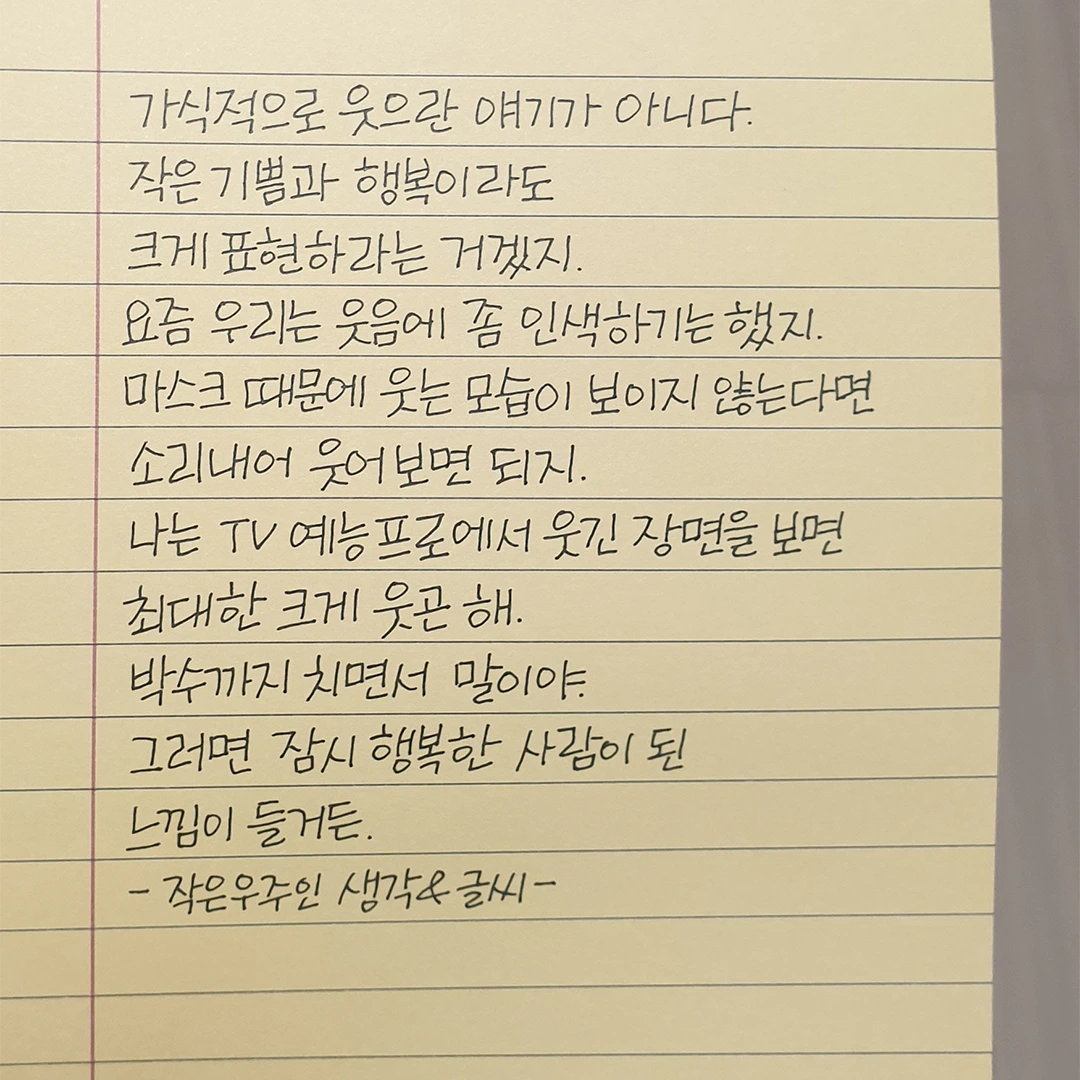 가식적으로 웃으란 얘기가 아니다.
작은 기쁨과 행복이라도
크게 표현하라는 거겠지.
요즘 우리는 웃음에 좀 인색하기는 했지.
마스크 때문에 웃는 모습이 보이지 않는다면
소리내어 웃어보면 되지.
나는 TV 예능프로에서 웃긴 장면을 보면
최대한 크게 웃곤 해.
박수까지 치면서 말이야.
그러면 잠시 행복한 사람이 된
느낌이 들거든.
- 작은우주인 생각&글씨 -